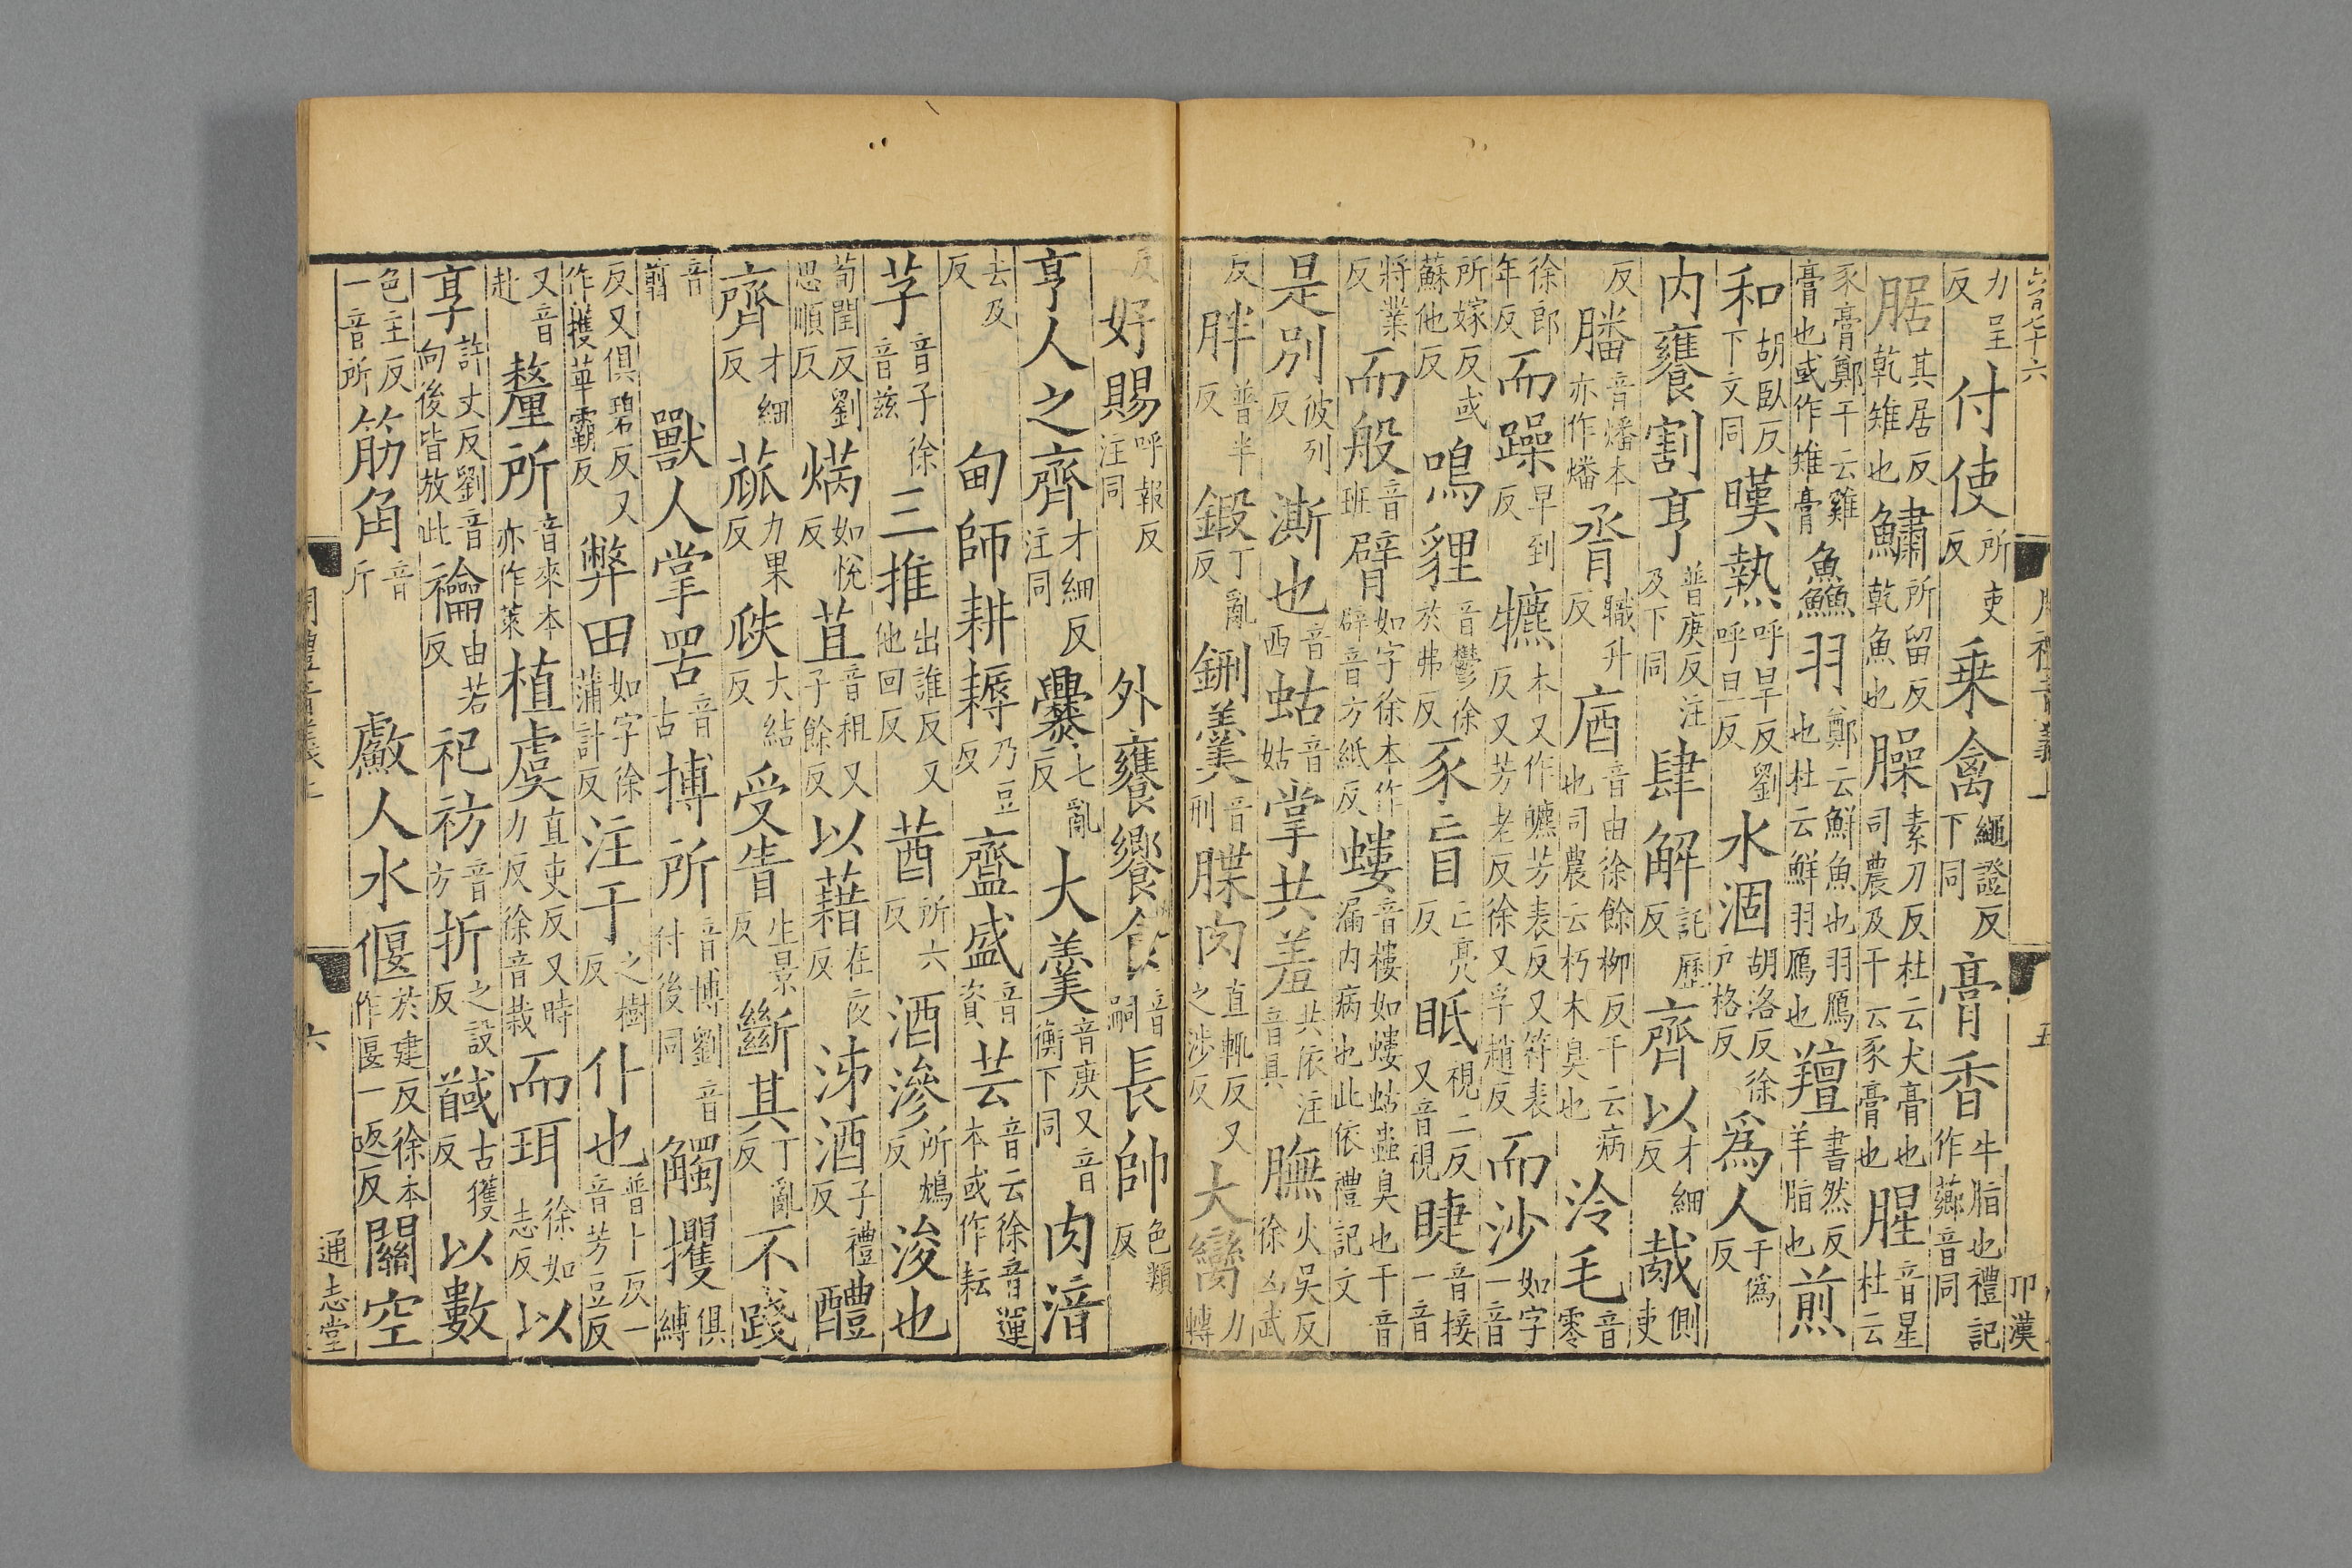 力呈反付使所吏反乗禽繩證反下同膏香牛脂也禮記作薌音同
腒其居反乾雉也鱐所留反乾魚也臊素刀反杜云犬膏也司農及干云豕膏也腥音星杜云
豕膏鄭干云雞膏也或作雉膏鱻羽鄭云鮮魚也羽鴈也杜云鮮羽鴈也羶書然反羊脂也煎
和胡臥反下文同暵熱呼旱反劉呼旦反水涸胡洛反徐戸格反爲人于僞反
内饔割亨普庚反注及下同肆解託歷反齊以才細反胾側吏
反膰音燔本亦作燔胥職升反庮音由徐餘柳反干云病也司農云朽木臭也泠毛音零
徐郎年反而躁早到反犥本又作皫芳表反又符表反又芳老反徐又孚趙反而沙如字一音
所嫁反或蘇他反鳴貍音鬱徐於弗反豕盲亡亮反眡視二反又音視睫音接一音
將業反而般音班臂如字徐本作辟音方紙反螻音樓如螻蛄蟲臭也干音漏内病也此依禮記文
是別彼列反澌也音西蛄音姑掌共羞共依注音具膴火吳反徐凶武
反胖普半反鍛丁亂反鉶羹音刑牒肉直輒反又之涉反大臠力轉
周禮音義上
五
反好賜呼報反注同外饔饗食音嗣長帥色類反
亨人之齊才細反注同爨七亂反大羹音庚又音衡下同肉湆
去及反甸師耕耨乃豆反齍盛音資芸音云徐音運本或作耘
芓音子徐音兹三推出誰反又他回反莤所六反酒滲所鴆反浚也
荀閏反劉思順反焫如悅反苴音祖又子餘反以藉在夜反泲酒子禮反醴
齊才細反蓏力果反瓞大結反受眚生景反斷其丁亂反不踐
音翦獸人掌罟音古搏所音博劉音付後同觸攫俱縛
反又俱碧反又作擭華霸反弊田如字徐蒲計反注于之樹反仆也普卜反一音芳豆反
又音赴斄所音來本亦作萊植虞直吏反又時力反徐音栽而珥徐如志反以
享許丈反劉音向後皆放此禴由若反祀祊音方折之設反馘古獲反以數
色主反一音所筋角音斤䱷人水偃於建反徐本作匽一返反關空
周禮音義上
六
通志堂